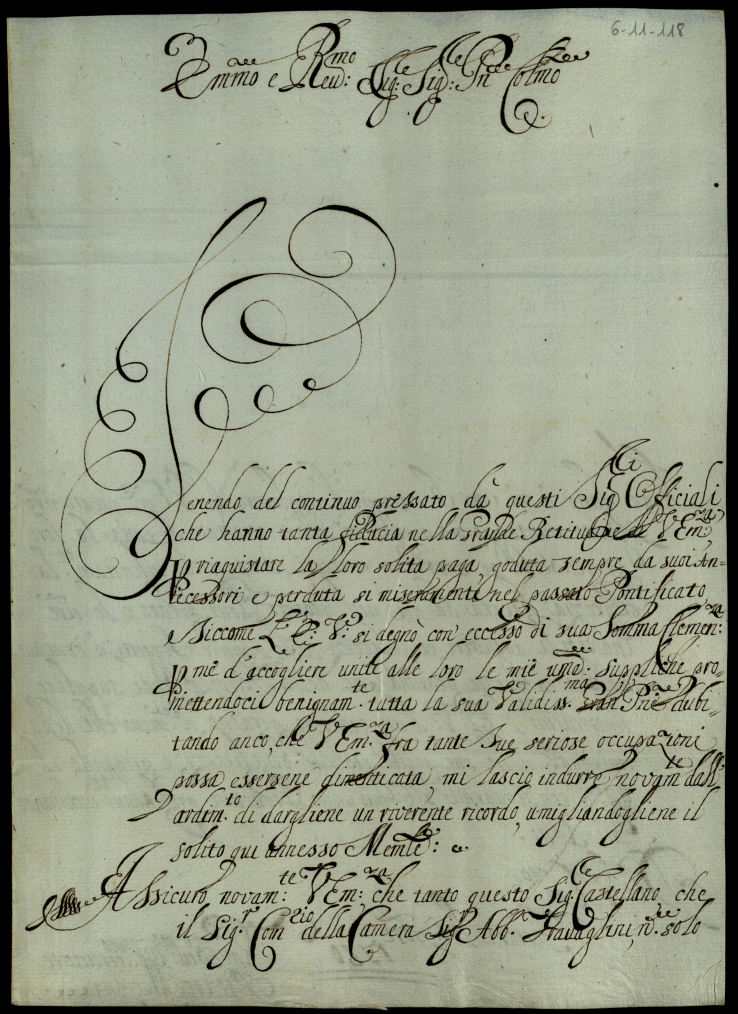 6-11-118
Emmo e Revd:mo Sig:re Sig:re Pne Colmo
Venendo del continuo pressato da questi Sigri Officiali
che hanno tanta fiducia nella Grande Retitudine di V Emza
p riaquistare la loro solita paga, goduta sempre da suoi An=
tecessori e perduta si miseramente nel passato Pontificato,
e Siccome V: si degnò con eccesso di sua Somma Clemenza:
p me d'accogliere unite alle loro le mie um: suppliche pro,
mettendoci benignam:te tutta la sua Validiss:ma gran Pne dubi,
tando anco, che V Em:za fra tante Sue seriose occupazioni
possa essersene dimenticata, mi lascio indurre novamte dall'
ardim:to di dargliene un riverente ricordo, umigliandogliene il
solito qui annesso Memle: e.
Assicuro novam:te V Em:za che tanto questo Sigr Castellano, che
il Sig:r Com:rio della Camera Sigr Abb:e Travaglini, n: solo